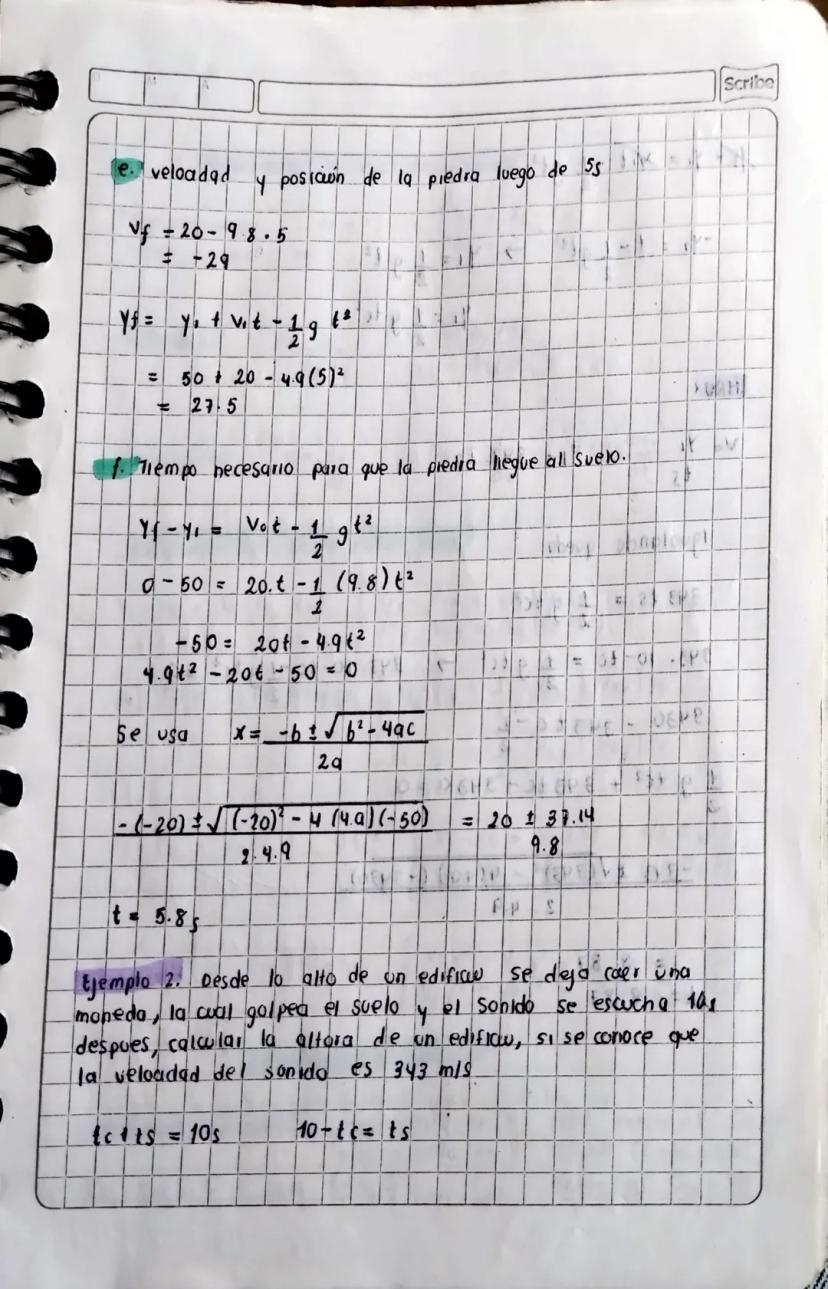 Scribe
e. velocidad y posición de la piedra luego de 5s
Vf = 20 - 9.8 . 5
= -29
Yf = y₁ + V₁t - 1/2 g t²
= 50 + 20 - 4.9(5)²
= 27.5
f. Tiempo necesario para que la piedra llegue all suelo.
Yf - y₁ = V₀t - 1/2 gt²
0 - 50 = 20.t - 1/2 (9.8)t²
-50 = 20t - 4.9t²
4.9t² - 20t - 50 = 0
Se usa x = -b ± √b² - 4ac / 2a
-(-20) ± √(-20)² - 4 (4.9)(-50) / 2.4.9 = 20 ± 37.14 / 9.8
t = 5.8s
Ejemplo 2. Desde lo alto de un edificio se deja caer una
moneda, la cual golpea el suelo y el sonido se escucha 10s
despues, calcular la altura de un edificio, si se conoce que
la velocidad del sonido es 343 m/s
tc + ts = 10s 10 - tc = ts